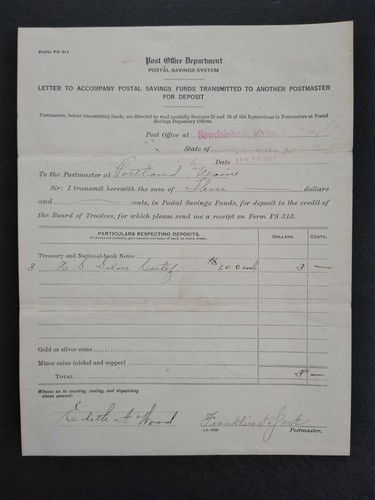 FORM PS 314
Post Office Department
POSTAL SAVINGS SYSTEM
LETTER TO ACCOMPANY POSTAL SAVINGS FUNDS TRANSMITTED TO ANOTHER POSTMASTER
FOR DEPOSIT
Postmasters, before transmitting funds, are directed to read carefully Sections 25 and 26 of the Instructions to Postmasters at Postal
Savings Depository Offices.
Post Office at Bowdoinham, Maine,
State of
Date
To the Postmaster at Portland Maine
Sir: I transmit herewith the sum of Three dollars
and cents, in Postal Savings Funds, for deposit to the credit of
the Board of Trustees, for which please send me a receipt on Form PS 313.
PARTICULARS RESPECTING DEPOSITS. DOLLARS. CENTS.
Treasury and National-bank Notes
3 U S Silver Certif 3 —
Gold or silver coins
Minor coins (nickel and copper)
TOTAL 3 —
Witness as to counting, sealing, and dispatching
above amount:
Edith A Wood Franklin
Postmaster.